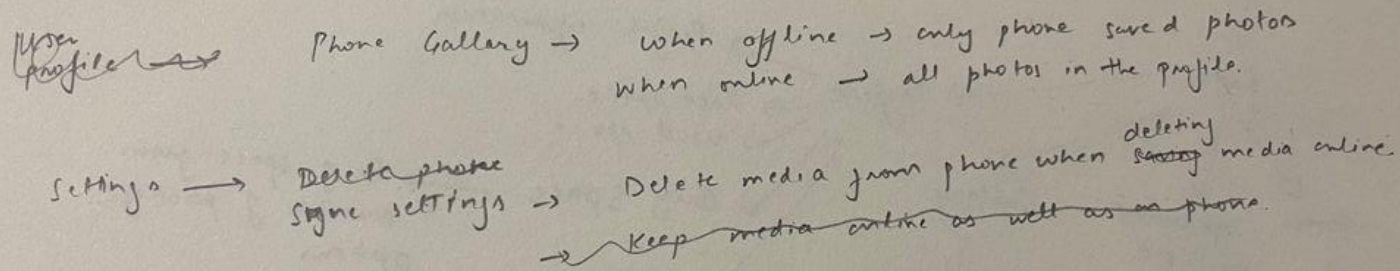 User profile → Phone Gallary → when offline → only phone saved photos
when online → all photos in the profile.
deleting
Settings → Delete photos
Sync settings → Delete media from phone when saving media online.
→ Keep media online as well as on phone.